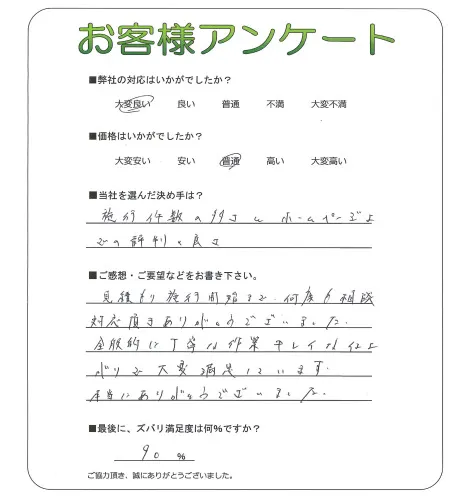 お客様アンケート
■弊社の対応はいかがでしたか？
大変良い 良い 普通 不満 大変不満
■価格はいかがでしたか？
大変安い 安い 普通 高い 大変高い
■当社を選んだ決め手は？
施行件数の多さと ホームページ上
での評判の良さ
■ご感想・ご要望などをお書き下さい。
見積もり施行開始まで、何度も相談
対応頂きありがとうございました。
全般的に丁寧な作業キレイな仕上
がりで大変満足しています。
本当にありがとうございました。
■最後に、ズバリ満足度は何%ですか？
90 %
ご協力頂き、誠にありがとうございました。